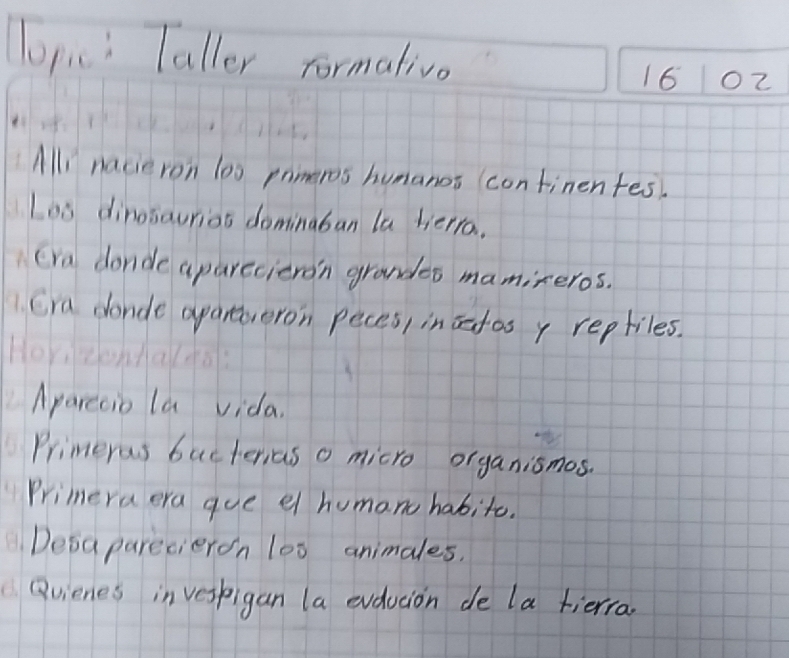 Topic: Taller formativo
16 02
Alli nacieron los primeros humanos (continentes).
Los dinosaurios dominaban la tierra.
Era donde aparecierón grandes mamireros.
9. Era donde aparecierón peces, insectos y reptiles.
Horizontales:
2. Aparecio la vida.
5. Primeras bacterias o micro organismos.
4. Primera era que el humano habito.
8. Desaparecierón los animales.
Quienes investigan la evolución de la tierra.